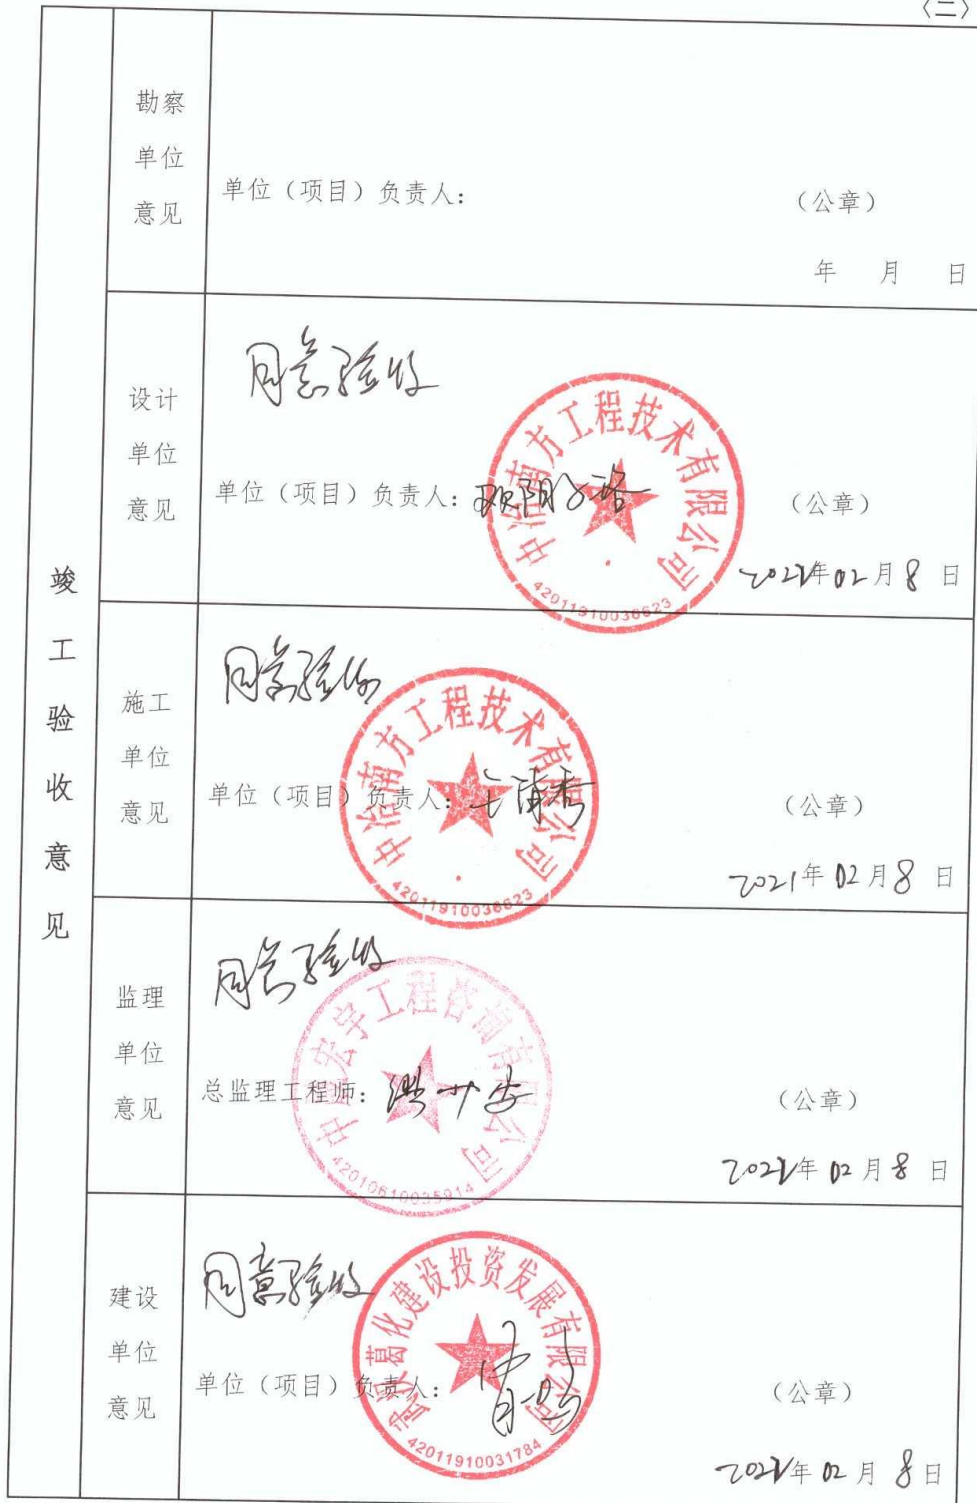 〈二〉
竣工验收意见
勘察单位意见
单位（项目）负责人：
（公章）
年 月 日
设计单位意见
同意验收
单位（项目）负责人：
中冶南方工程技术有限公司
42011910036623
（公章）
年02月8日
施工单位意见
同意验收
单位（项目）负责人：
中冶南方工程技术有限公司
42011910036623
（公章）
2021年02月8日
监理单位意见
同意验收
总监理工程师：
宏宇工程咨询有限公司
42010610035914
（公章）
年02月8日
建设单位意见
同意验收
单位（项目）负责人：
葛化建设投资发展有限公司
42011910031784
（公章）
年02月8日